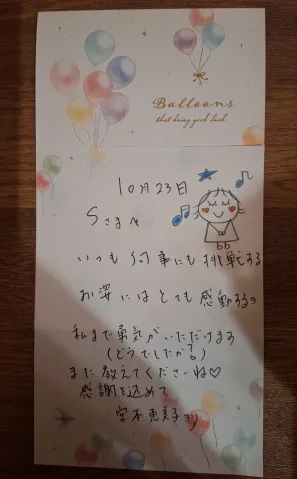 Balloons
that bring good luck
10月23日
Sさまへ
いつも何事にも挑戦する
お姿にはとても感動するヨ
私まで勇気がいただけます
(どうでしたか?)
また教えてくださいね♡
感謝を込めて
宮本恵美子より